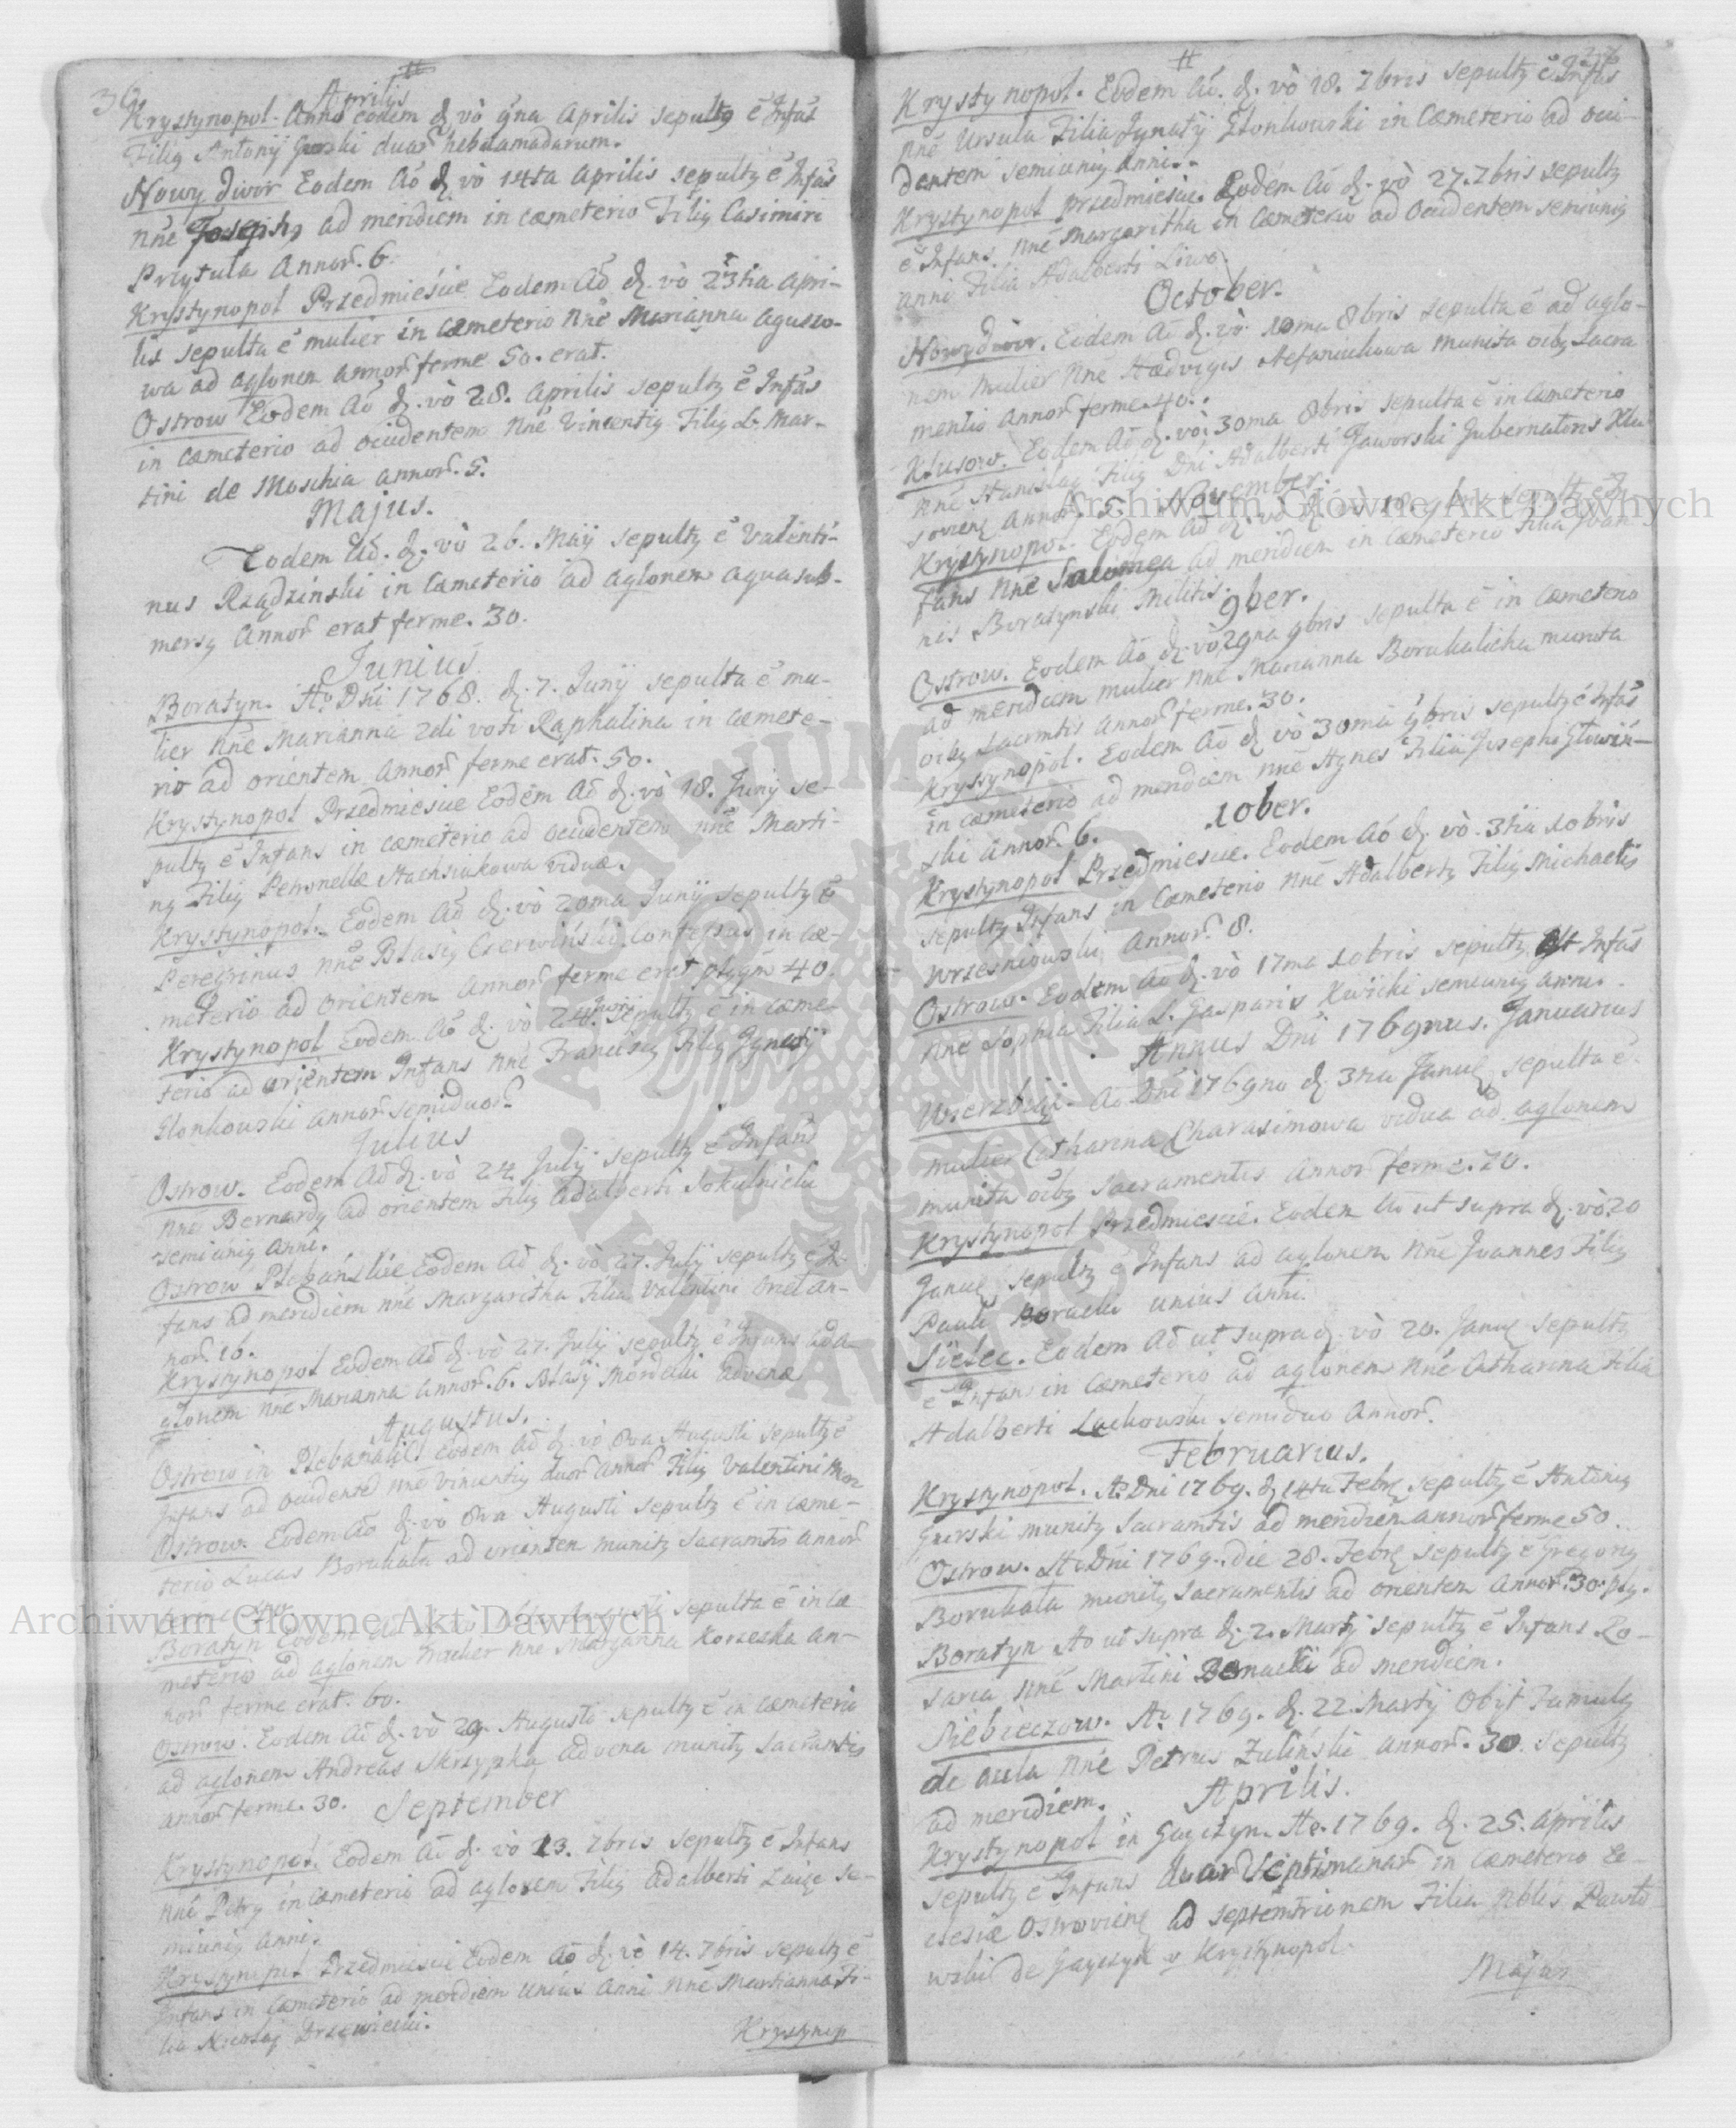 36
Aprilis
Krystynopol. Anno eodem d. vò 9na Aprilis sepultg ē Infās
Filig Antonij Gurski duar hebdomadarum.
Nowy dwór Eodem Aō d. vò 14ta Aprilis sepultg ē Infās
Nnē Josephg ad meridiem in cæmeterio Filig Casimiri
Przytula Annor. 6.
Krystynopol Przedmieście Eodem Aō d. vò 23tia Apri-
lis sepulta ē mulier in cæmeterio Nnē Marianna Aguszo-
wa ad aglonem annor ferme 50. erat.
Ostrow Eodem Aō d. vò 28. Aprilis sepultg ē Infās
in cæmeterio ad occidentem Nnē Vincentig Filig L. Mar-
tini de Moschia annor. 5.
Majus.
Eodem Aō. d. vò 26. Maij sepultg ē Valenti-
nus Rządzinski in Cæmeterio ad aglonem aqua sub-
mersg Annor erat ferme. 30.
Junius
Boratyn. Ao Dni 1768. d. 7. Junij sepulta ē mu-
lier Nnē Marianna 2di voti Raphalina in cæmete-
rio ad orientem Annor ferme erat. 50.
Krystynopol Przedmiescie Eodem Aō d. vò 18. Junij se-
pultg ē Infans in cæmeterio ad occidentem Nnē Marti-
ng Filig Petronellæ Stachsiakowa viduæ.
Krystynopol. Eodem Aō d. vò 20ma Junij sepultg ē
Peregrinus Nnē Blasig Czerwiński Confessus in cæ-
meterio ad Orientem Annor ferme erat 40.
Krystynopol Eodem Aō d. vò 24. Junij sepultg ē in cæme-
terio ad orientem Infans Nnē Franciscg Filig Ignatij
Slonkowski annor semiduor.
Julius
Ostrow. Eodem Aō d. vò 24 Julij sepultg ē Infans
Nnē Bernardg ad orientem Filig Adalberti Sokulnicki
semiunig Anni.
Ostrow Plebańskie Eodem Aō d. vò 27. Julij sepultg ē In-
fans ad meridiem Nnē Margaritha Filia Valentini Oriel an-
nor. 16.
Krystynopol Eodem Aō d. vò 27. Julij sepultg ē Infans ad a-
glonem Nnē Marianna annor. 6. Blasij advenæ
Augustus.
Ostrow in Eodem Aō d. vò 8va Augusti sepultg ē
Infans ad occidente Nnē Vincentig duor annor Filig Valentini
Ostrow. Eodem Aō d. vò 8va Augusti sepultg ē in cæme-
terio Lucas Borukała ad orientem munitg Sacramtis annor
Boratyn Eodem Aō Augusti sepulta ē in cæ-
meterio ad aglonem mulier Nnē Marjanna Korzeska an-
nor ferme erat. 60.
Ostrow. Eodem Aō d. vò 29. Augusti sepultg ē in cæmeterio
ad aglonem Andreas Skrzypka advena munitg Sacramtis
annor ferme. 30.
September
Krystynopol. Eodem Aō d. vò 13. 7bris sepultg ē Infans
Nnē Petrg in cæmeterio ad aglonem Filig Adalberti Luize se-
miunig Anni.
Krystynopol Przedmiescie Eodem Aō d. vò 14. 7bris sepultg ē
Infans in Cæmeterio ad meridiem unius Anni Nnē Marianna Fi-
lia Nicolaj Drzewiecki.
Krystynop
Krystynopol. Eodem Aō. d. vò 18. 7bris sepultg ē Infās
Nnē Ursula Filia Ignatij Slonkowski in Cæmeterio ad occi-
dentem semiunig Anni.
Krystynopol przedmiescie. Eodem Aō d. vò 27. 7bris sepultg
ē Infans. Nnē Margaritha in Cæmeterio ad Occidentem semiunig
anni Filia Adalberti Liwo.
October.
Nowydwór. Eodem Aō d. vò. 10ma 8bris sepulta ē ad aglo-
nem mulier Nnē Hædvigis Stefaniukowa munita oibg Sacra
mentis annor ferme 40.
Klusow. Eodem Aō d. vò 30ma 8bris sepulta ē in Cæmeterio
Nnē Stanislag Filig Dni Adalberti Jaworski Gubernatoris Klu
soviens Annor. 5.
November.
Krystynopol. Eodem Aō d. vò 18 9bris sepultg ē In-
fans Nnē Salomea ad meridiem in cæmeterio Filia Joan-
nis Boratynski Militis.
9ber.
Ostrow. Eodem Aō d. vò 29na 9bris sepulta ē in Cæmeterio
ad meridiem mulier Nnē Marianna Borukalicha munita
oibg Sacrmtis annor ferme. 30.
Krystynopol. Eodem Aō d. vò 30ma 9bris sepultg ē Infās
in cæmeterio ad meridiem Nnē Agnes Filia Josephi Głowiń-
ski Annor. 6.
10ber.
Krystynopol Przedmiescie. Eodem Aō d. vò. 3tia 10bris
sepultg Infans in Cæmeterio Nnē Adalbertg Filig Michaelis
Wrzesniowski Annor. 8.
Ostrow. Eodem Aō d. vò 17ma 10bris sepultg est Infās
Nnē Sophia Filia L. Gasparis Kwicki semiunig anni.
Annus Dni 1769nus. Januarius
Wierzbiąż. Aō Dni 1769no d. 3tia Janue sepulta ē
mulier Catharina Charasimowa vidua ad aglonem
munita oibg Sacramentis annor ferme. 70.
Krystynopol Przedmiescie. Eodem Aō ut supra d. vò 20
Janue sepultg ē Infans ad aglonem Nnē Joannes Filig
Pauli unius anni.
Sielec. Eodem Aō ut supra d. vò 20. Janue sepultg
ē Infans in Cæmeterio ad aglonem Nnē Catharina Filia
Adalberti Lackowski semiduo Annor.
Februarius.
Krystynopol. Ao Dni 1769. d. 14ta Febre sepultg ē Antonig
Gurski munitg Sacramtis ad meridiem annor ferme 50.
Ostrow. Ao Dni 1769. die 28. Febre sepultg ē Gregorig
Borukała munitg Sacramentis ad orientem Annor. 30. plg.
Boratyn Ao ut supra d. 2. Martij sepultg ē Infans Ro-
saria Nnē Martini ad meridiem.
Siebieczow. Ao 1769. d. 22 Martij Obijt Famulg
de aula Nnē Petrus Zuliński annor. 30. sepultg
ad meridiem.
Aprilis.
Krystynopol in Gayczyn. Ao. 1769. d. 25. Aprilis
sepultg ē Infans duar Septimanar in cæmeterio Ec-
clesiæ Ostroviens ad septemtrionem Filia Nblis Pawło
wski de Gayczyk v Krystynopol.
Majus
Archiwum Główne Akt Dawnych
Archiwum Główne Akt Dawnych
ARCHIWUM GŁÓWNE AKT DAWNYCH